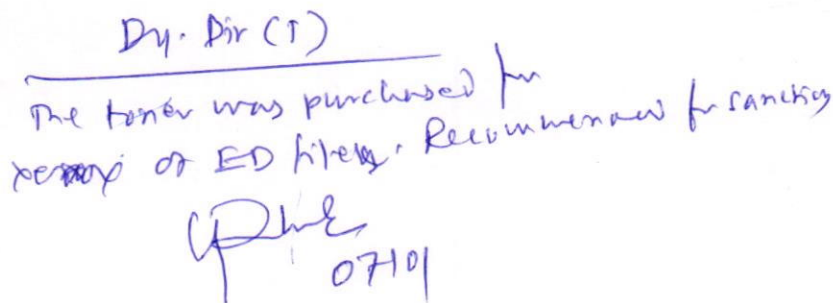 Dy. Dir (T)
The toner was purchased for
xerox of ED files. Recommended for sanction
07/01